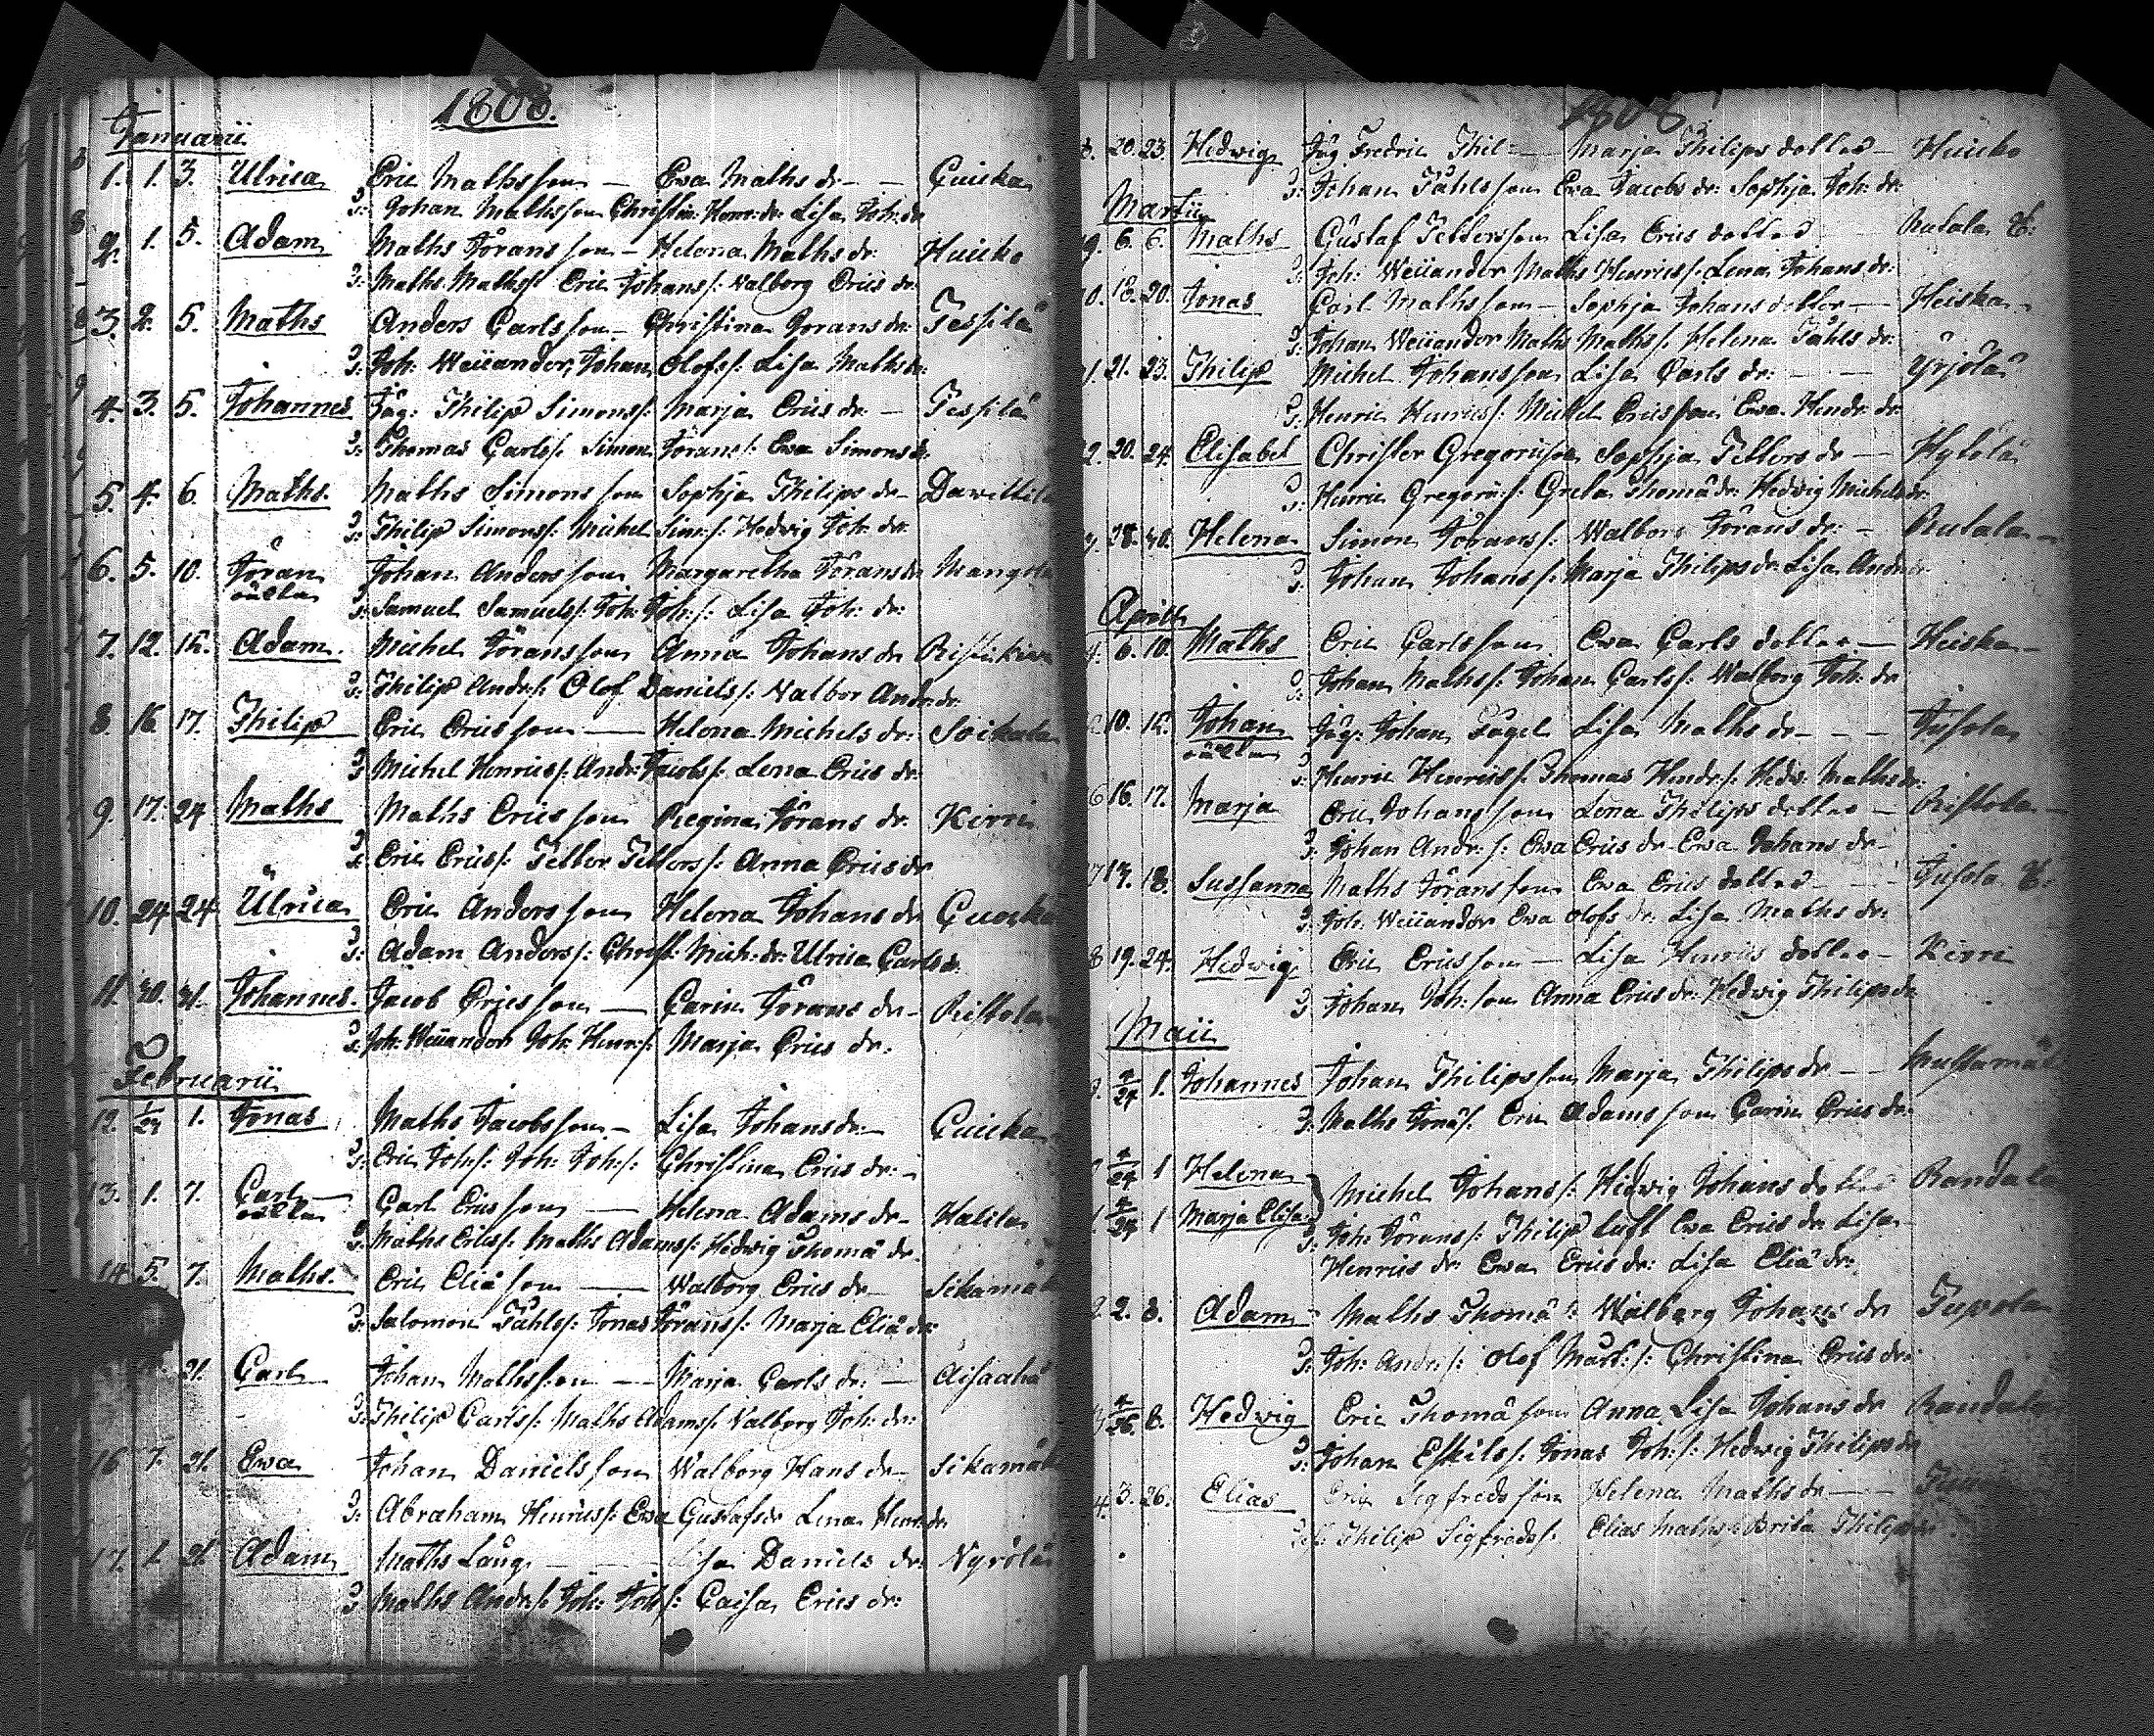 1808.
Januarii
1. 1. 3. Ulrica Eric Mathsson — Ewa Maths dr — Guicka
Johan Mathsson Christin: Henr: dr Lisa Joh: dr
2. 1. 5. Adam Maths Jöransson — Helena Maths dr: Huicko
Maths Maths/: Eric Johans/: Walborg Erics dr:
3. 2. 5. Maths Anders Carlsson — Christina Görans dr:
Joh: Weüander, Johan Olofs/: Lisa Maths dr:
4. 3. 5. Johannes Philip Simons/: Marja Erics dr: —
Thomas Carls/: Simon Jörans/: Ewa Simons dr:
5. 4. 6. Maths. Maths Simonsson Sophja Philips dr —
Philip Simons/: Michel Sim:/: Hedwig Joh: dr:
6. 5. 10. Jöran Johan Andersson Margaretha Jörans dr
oäkta Samuel Samuels/: Joh: Joh:/: Lisa Joh: dr:
7. 12. Adam. Michel Jöransson Anna Johans dr
Philip Andr:/: Olof Daniels/: Walbor Andr: dr:
8. 16. 17. Philip Eric Ericsson — Helena Michels dr: Soikala
Michel Henrics/: Andr: Jacobs/: Lena Erics dr:
9. 17. 24 Maths Maths Ericsson Regina Jörans dr: Kirri
Eric Erics/: Petter Petters/: Anna Erics dr
10. 24 24 Ulrica Eric Andersson Helena Johans dr
Adam Anders/: Christ: Mich: dr: Ulrica Carls dr.
11. 30. 31. Johannes. Jacob Ericsson — Carin Jörans dr — Ristola
Joh: Weüander Joh: Henr:/: Marja Erics dr:
Februarii
12. 1. Jonas Maths Jacobsson — Lisa Johans dr — Guicka
Eric Joh:/: Joh: Joh:/: Christina Erics dr: —
13. 1. 7. Carl — Carl Ericsson — Helena Adams dr — Halila
oäkta Maths Erics/: Maths Adams/: Hedwig Thomä dr
14. 5. 7. Maths. Eric Eliäson — Walborg Erics dr —
Salomon Påhls/: Jonas Jörans/: Marja Eliä dr:
21. Carl Johan Mathsson — Marja Carls dr: —
Philip Carls/: Maths Adams/: Walborg Joh: dr:
16 7. 21. Ewa Johan Danielsson Walborg Hans dr —
Abraham Henrics/: Ewa Gustafs dr Lena Henr: dr
17. 21. Adam Maths Lång — Lisa Daniels dr: Nyrölä
Maths Andr:/: Joh: Joh:/: Caisa Erics dr:
1808
20. 23. Hedwig Fredric — Marja Philips dotter — Huicko
Johan Påhlsson Ewa Jacobs dr: Sophja Joh: dr:
Martii
6. 6. Maths Gustaf Pettersson Lisa Erics dotter — Rutala
Joh: Weüander Maths Henrics/: Lena Johans dr:
18. 20. Jonas Carl Mathsson — Sophja Johans dotter — Heiska
Johan Weüander Maths Maths/: Helena Påhls dr:
21. 23. Philip Michel Johansson Lisa Carls dr: — Yrjölä
Henric Henrics/: Michel Ericsson Ewa Hendr: dr:
20. 24. Elisabet Christer Gregorii son Sophja Petters dr —
Henric Gregorii/: Greta Thomä dr: Hedwig Michels dr:
28. 30. Helena Simon Jörans/: Walborg Jörans dr: — Rutala
Johan Johans/: Marja Philips dr: Lisa Andr: dr
Aprill
6. 10. Maths Eric Carlsson Ewa Carls dotter — Heiska
Johan Maths/: Johan Carls/: Walborg Joh: dr
10. Johan Johan Lisa Maths dr —
oäkta Henric Henrics/: Thomas Hendr:/: Hedw: Maths dr:
16. 17. Marja Eric Johansson Lena Philips dotter — Ristola
Johan Andr:/: Ewa Erics dr — Ewa Johans dr —
17. 18. Sussanna Maths Jöransson Ewa Erics dotter
Joh: Weüander Ewa Olofs dr: Lisa Maths dr:
19. 24. Hedwig Eric Ericsson — Lisa Henrics dotter — Kirri
Johan Joh:son Anna Erics dr: Hedwig Philips dr
Maii
4/24 1. Johannes Johan Philipsson Marja Philips dr —
Maths Jonä/: Eric Adamsson Carin Erics dr:
4/24 1 Helena Michel Johans/: Hedwig Johans dotter
4/24 1 Marja Elisa Joh: Jörans/: Philip Luft Ewa Erics dr Lisa
Henrics dr: Ewa Erics dr: Lisa Eliä dr:
2. 8. Adam Maths Thomä/: Walborg Johans dr
Joh: Andr:/: Olof Mårt:/: Christina Erics dr:
4/26 8. Hedwig Eric Thomä son Anna Lisa Johans dr
Johan Eskils/: Jonas Joh:/: Hedwig Philips dr
3. 26. Elias Eric Sigfredsson Helena Maths dr —
Philip Sigfreds/: Elias Maths/: Brita Philips dr